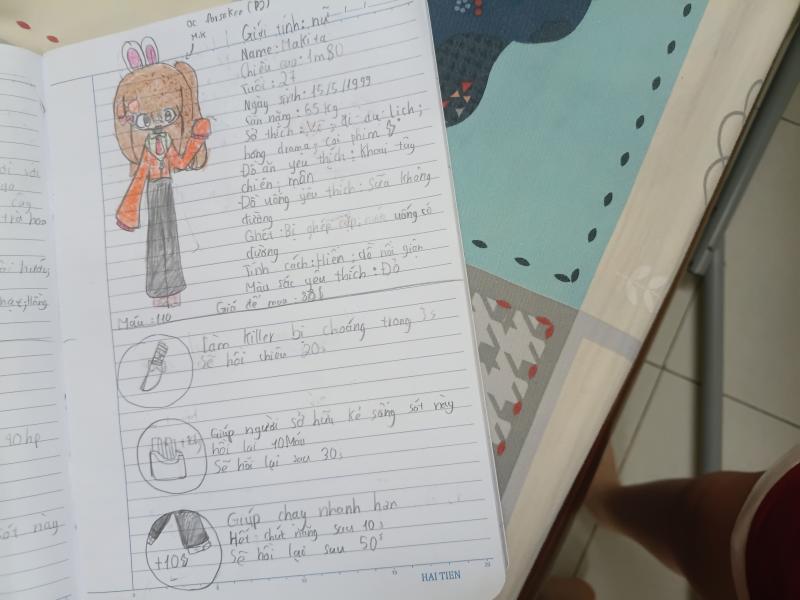 OC Forsaken (P2)
Giới tính: nữ
Name: Makita
Chiều cao: 1m80
Tuổi: 27
Ngày sinh: 15/5/1999
Cân nặng: 65kg
Sở thích: Vẽ; đi du lịch;
hóng drama; coi phim
Đồ ăn yêu thích: Khoai tây
chiên; mận
Đồ uống yêu thích: Sữa không
đường
Ghét: Bị ghép cặp, uống có
đường
Tính cách: Hiền; dễ nổi giận
Màu sắc yêu thích: Đỏ
Máu: 110
Giá để mua: 
Làm killer bị choáng trong 3s
Sẽ hồi chiêu 20s
Giúp người sở hữu kẻ sống sót này
hồi lại 10 Máu
Sẽ hồi lại sau 30s
Giúp chạy nhanh hơn
Hết chức năng sau 10s
Sẽ hồi lại sau 50s
+10s
HAI TIEN
90hp
sót này